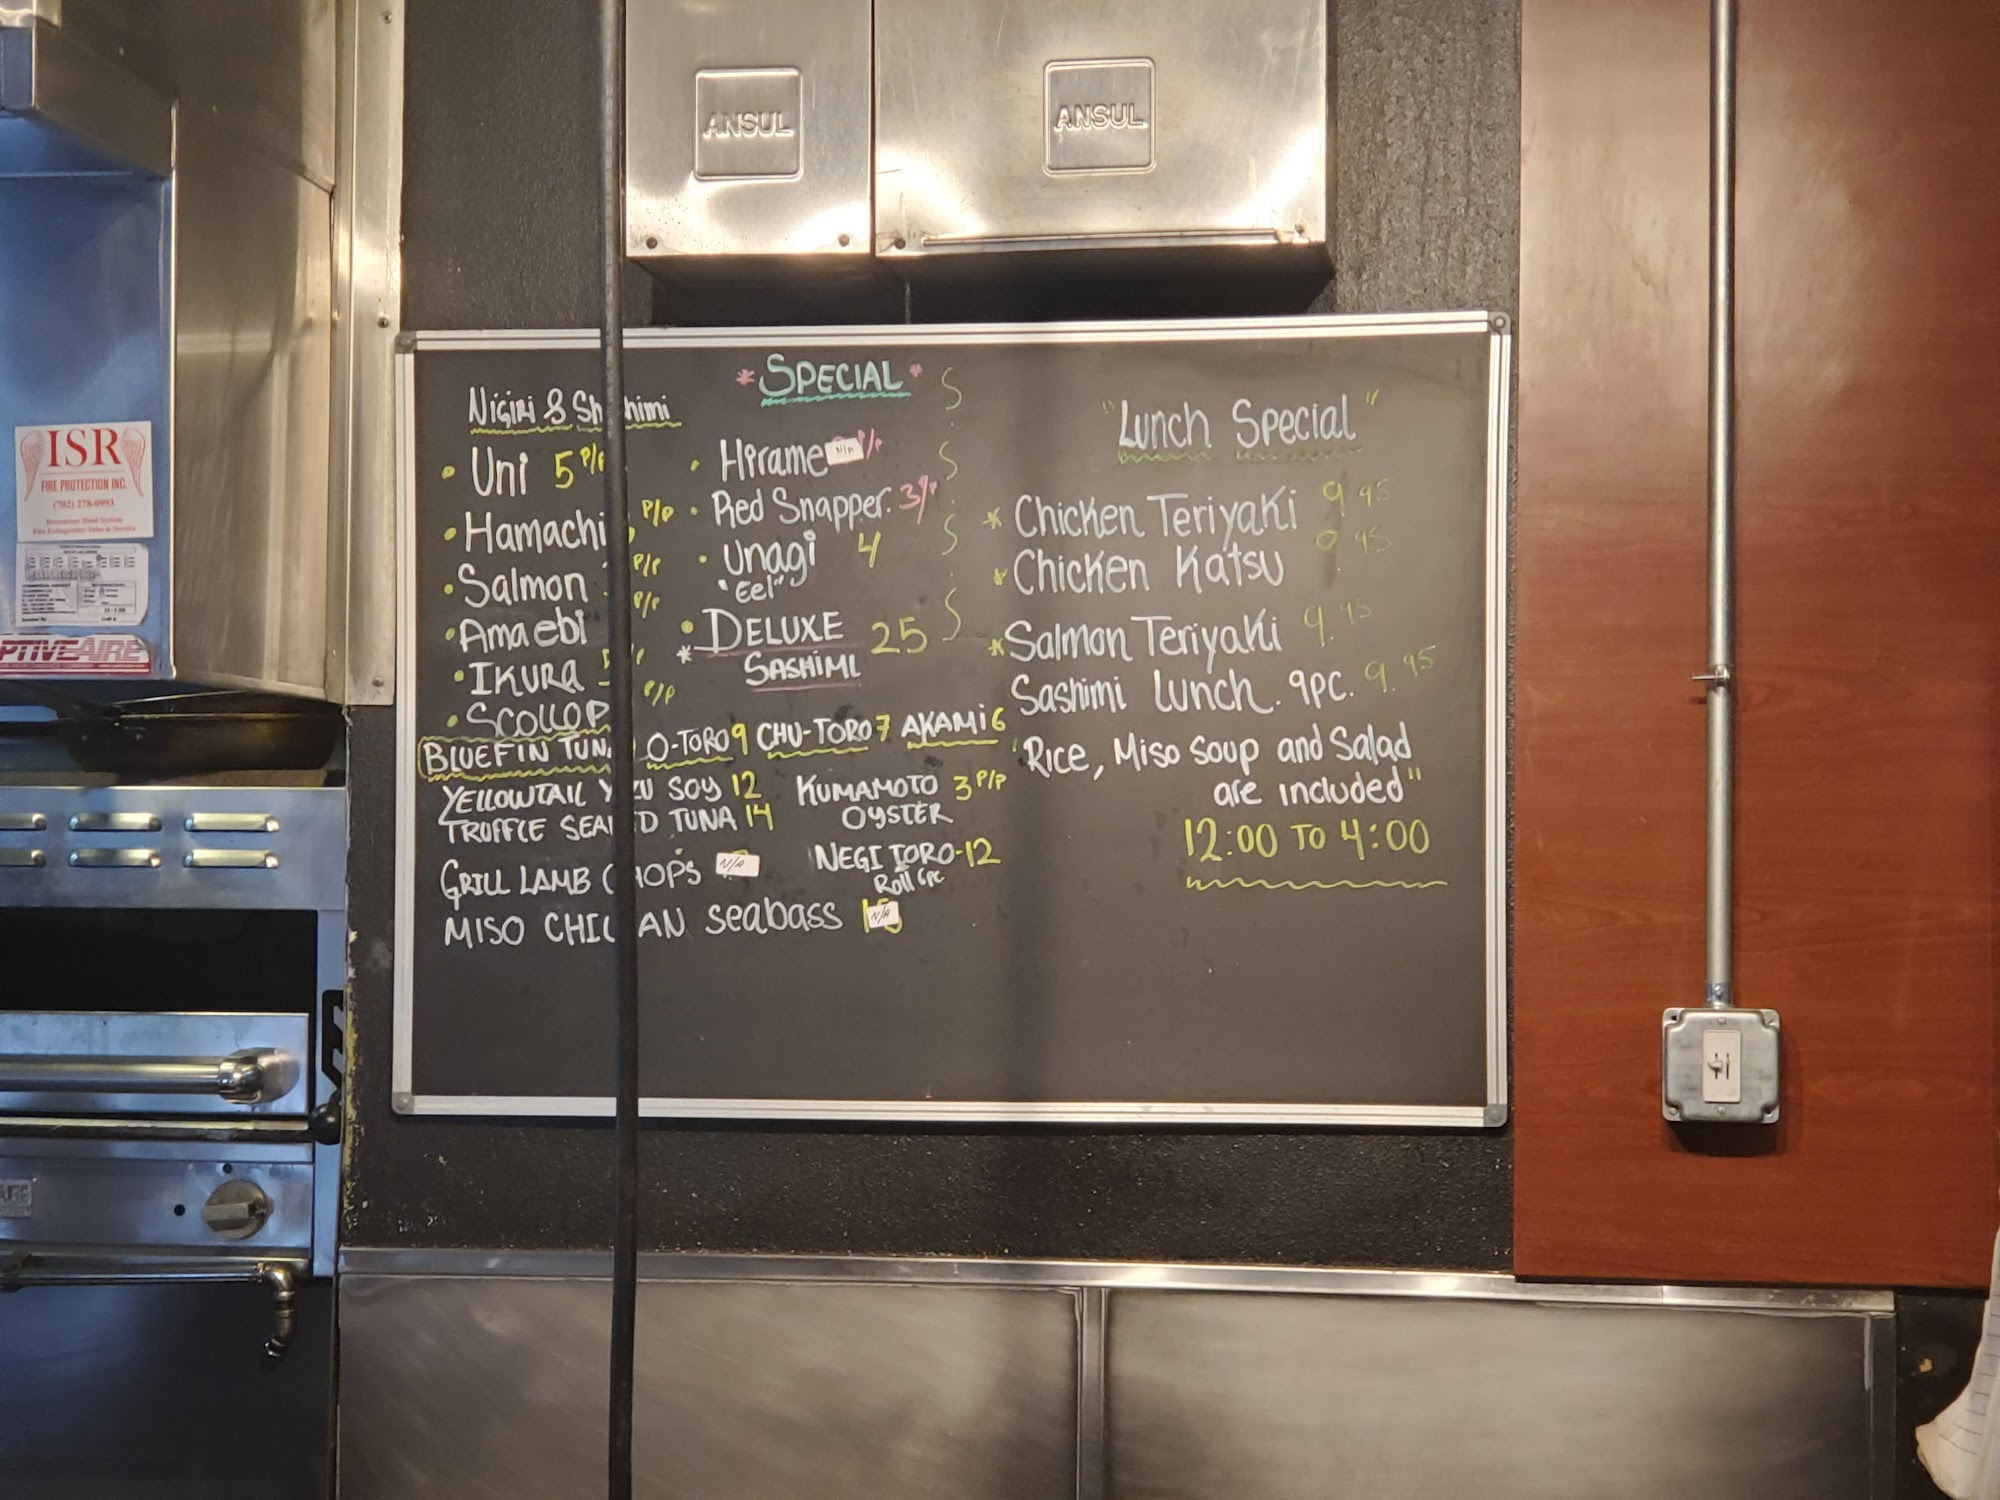 ANSUL
ANSUL
ISR
FIRE PROTECTION INC.
(702) 278-0993
Restaurant Hood System
Fire Extinguisher Sales & Service
PTIVEAIRE
* SPECIAL *
NiGiRi & Sh himi
• Uni 5 P/P
• Hamachi P/P
• Salmon P/P
• Amaebi P/P
• IKURA
• SCOLLOP P/P
• Hirame N/A
• Red Snapper. 3/P
• Unagi 4
"Eel"
* DELUXE 25
SASHIMI
BLUEFIN TUN O-TORO 9 CHU-TORO 7 AKAMi 6
YELLOWTAIL Y ZU SOY 12
TRUFFLE SEA D TUNA 14
GRILL LAMB C HOPS N/A
MISO CHIL AN Seabass N/A
KUMAMOTO 3 P/P
OYSTER
NEGI TORO-12
Roll 6pc
"Lunch Special"
* Chicken Teriyaki 9.95
* Chicken Katsu 95
* Salmon Teriyaki 9.95
Sashimi Lunch. 9pc. 9.95
"Rice, Miso Soup and Salad
are included"
12:00 TO 4:00